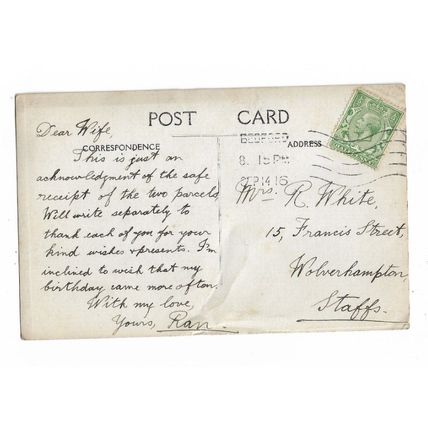 POST CARD
CORRESPONDENCE
ADDRESS
BEDFORD
8. 15 PM
SEP 14 16
Dear Wife,
This is just an
acknowledgment of the safe
receipt of the two parcels.
Will write separately to
thank each of you for your
kind wishes & presents. I'm
inclined to wish that my
birthday came more often.
With my love,
Yours, Ran.
Mrs. R. White,
15, Francis Street,
Wolverhampton,
Staffs.